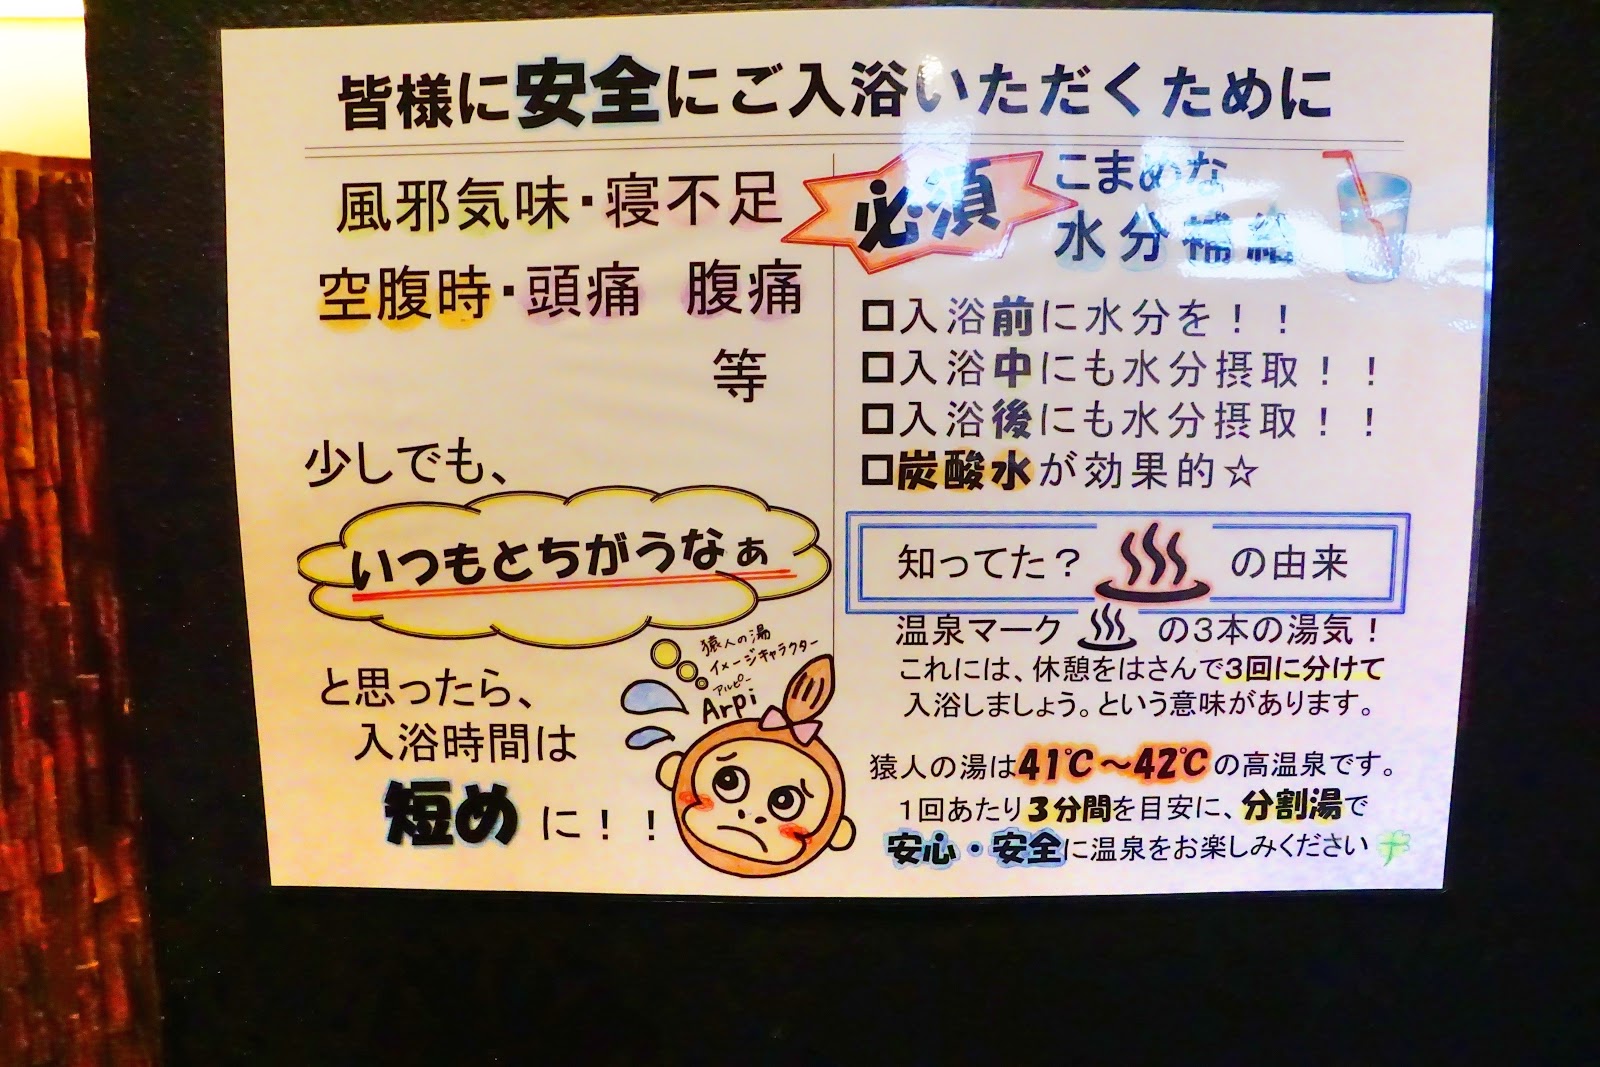 皆様に安全にご入浴いただくために
風邪気味・寝不足
空腹時・頭痛 腹痛
等
少しでも、
いつもとちがうなぁ
と思ったら、
入浴時間は
短めに！！
猿人の湯
イメージキャラクター
アルピー
Arpi
必須
こまめな
水分補給
□入浴前に水分を！！
□入浴中にも水分摂取！！
□入浴後にも水分摂取！！
□炭酸水が効果的☆
知ってた？♨の由来
温泉マーク♨の３本の湯気！
これには、休憩をはさんで３回に分けて
入浴しましょう。という意味があります。
猿人の湯は41℃～42℃の高温泉です。
１回あたり３分間を目安に、分割湯で
安心・安全に温泉をお楽しみください